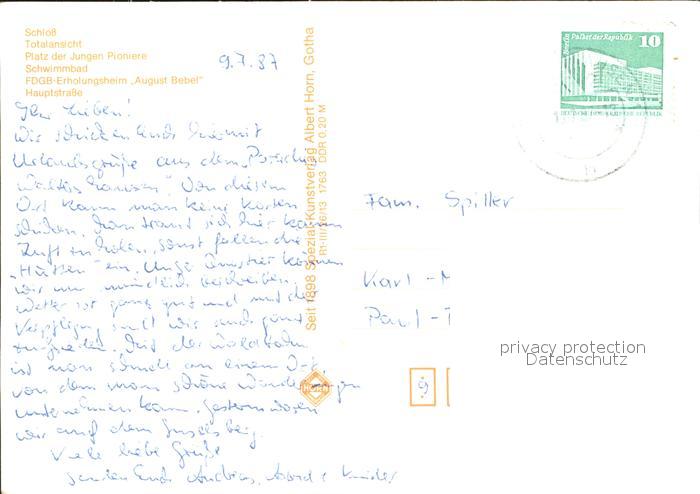 Schloß
Totalansicht
Platz der Jungen Pioniere
Schwimmbad
FDGB-Erholungsheim „August Bebel"
Hauptstraße
9.7.87
Ihr Lieben!
Wir schicken Euch hiermit
Urlaubsgrüße aus dem
Von diesem
Ort kann man keine Karten
senden. Man traut sich hier kaum
Luft zu holen, sonst fallen die
„Hütten" ein. können
wir nur mündlich beschreiben.
Wetter ist ganz gut und mit der
Verpflegung sind wir auch ganz
zufrieden. Mit der Waldbahn
ist man schnell an einem Ort,
von dem man schöne Wanderungen
unternehmen kann. Gestern waren
wir auf dem Inselsberg.
Viele liebe Grüße
senden Euch Andreas, Kinder
Seit 1898 Spezial-Kunstverlag Albert Horn, Gotha
R1-III/26/13 1763 DDR 0,20 M
HORN
Berlin Palast der Republik
10
DEUTSCHE DEMOKRATISCHE REPUBLIK
Fam. Spiller
Karl-M
Paul-
9
privacy protection
Datenschutz